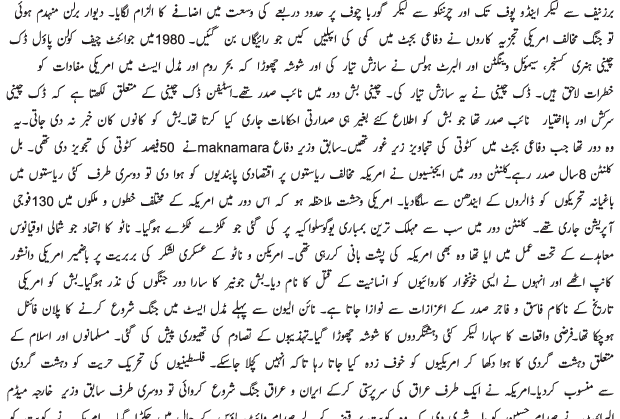 برزنیف سے لیکر اینڈو پوف تک اور چرننکو سے لیکر گوربا چوف پر حدود دربعے کی وسعت میں اضافے کا الزام لگایا۔ دیوار برلن منہدم ہوئی
تو جنگ مخالف امریکی تجزیہ کاروں نے دفاعی بجٹ میں کمی کی اپیلیں کیں جو رائیگاں بن گئیں۔ 1980میں جوائنٹ چیف کولن پاؤل ڈک
چینی ہنری کسنجر، سیموئل ہنٹگٹن اور البرٹ ہولس نے سازش تیار کی اور شوشہ چھوڑا کہ بحر روم اور مڈل ایسٹ میں امریکی مفادات کو
خطرات لاحق ہیں۔ ڈک چینی نے یہ سازش تیار کی۔ چینی بش دور میں نائب صدر تھے۔اسٹیفن ڈک چینی کے متعلق لکھتا ہے کہ ڈک چینی
سرکش اور بااختیار نائب صدر تھا جو بش کو اطلاع کئے بغیر ہی صدارتی احکامات جاری کیا کرتا تھا۔بش کو کانوں کان خبر نہ دی جاتی۔یہ
وہ دور تھا جب دفاعی بجٹ میں کٹوتی کی تجاویز زیر غور تھیں۔سابق وزیر دفاع maknamaraنے 50فیصد کٹوتی کی تجویز دی تھی۔ بل
کلنٹن 8سال صدر رہے۔کلنٹن دور میں ایجنسیوں نے امریکہ مخالف ریاستوں پر اقتصادی پابندیوں کو ہوا دی تو دوسری طرف کئی ریاستوں میں
باغیانہ تحریکوں کو ڈالروں کے ایندھن سے سلگادیا۔ امریکی وحشت ملاحظہ ہو کہ اس دور میں امریکہ کے مختلف خطوں و ملکوں میں 130فوجی
آپریشن جاری تھے۔ کلنٹن دور میں سب سے مہلک ترین بمباری یوگوسلواکیہ پر کی گئی جو ٹکڑے ٹکڑے ہوگیا۔ ناٹو کا اتحاد جو شمالی اوقیانوس
معاہدے کے تحت عمل میں ایا تھا وہ بھی امریکہ کی پشت بانی کررہی تھی۔ امریکن و ناٹو کے عسکری لشکر کی بربریت پر باضمیر امریکی دانشور
کانپ اٹھے اور انہوں نے ایسی خونخوار کاروائیوں کو انسانیت کے قتل کا نام دیا۔بش جونیر کا سارا دور جنگوں کی نذر ہوگیا۔بش کو امریکی
تاریخ کے ناکام فاسق و فاجر صدر کے اعزازات سے نوازا جاتا ہے۔ نائن الیون سے پہلے مڈل ایسٹ میں جنگ شروع کرنے کا پلان فائنل
ہوچکا تھا۔فرضی واقعات کا سہارا لیکر کئی دہشتگردوں کا شوشہ چھوڑا گیا۔تہذیبوں کے تصادم کی تھیوری پیش کی گئی۔ مسلمانوں اور اسلام کے
متعلق دہشت گردی کا ہوا دکھا کر امریکیوں کو خوف زدہ کیا جاتا رہا تاکہ انہیں کچلا جاسکے۔ فلسطینیوں کی تحریک حریت کو دہشت گردی
سے منسوب کردیا۔امریکہ نے ایک طرف عراق کی سرپرستی کرکے ایران و عراق جنگ شروع کروائی تو دوسری طرف سابق وزیر خارجہ میڈم